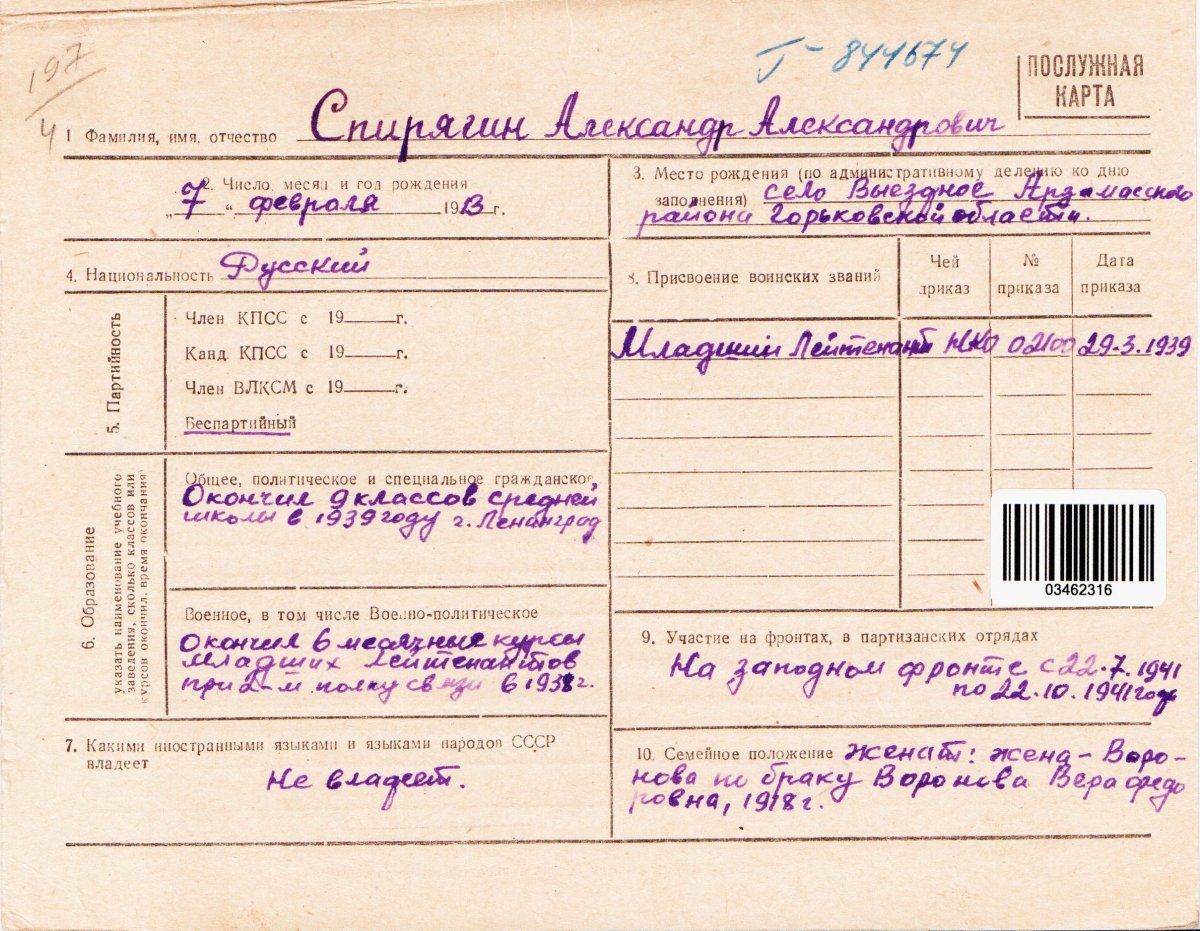 197
4
Г-844674
ПОСЛУЖНАЯ
КАРТА
1 Фамилия, имя, отчество Спирягин Александр Александрович
2. Число, месяц и год рождения
„7“ февраля 1913 г.
3. Место рождения (по административному делению ко дню
заполнения) село Выездное Арзамасского
района Горьковской области.
4. Национальность Русский
5. Партийность
Член КПСС с 19 г.
Канд. КПСС с 19 г.
Член ВЛКСМ с 19 г.
Беспартийный
6. Образование
указать наименование учебного
заведения, сколько классов или
курсов окончил, время окончания
Общее, политическое и специальное гражданское
Окончил 9 классов средней
школы в 1939 году г. Ленинград
Военное, в том числе Военно-политическое
Окончил 6 месячные курсы
младших лейтенантов
при 2-м полку связи в 1938 г.
7. Какими иностранными языками и языками народов СССР
владеет
Не владеет.
8. Присвоение воинских званий
Чей
приказ
№
приказа
Дата
приказа
Младший Лейтенант НКО 02100 29.3.1939
03462316
9. Участие на фронтах, в партизанских отрядах
На заподном фронте с 22.7.1941
по 22.10.1941 года
10. Семейное положение женат: жена - Воро-
нова по браку Воронова Вера Федо
ровна, 1918 г.